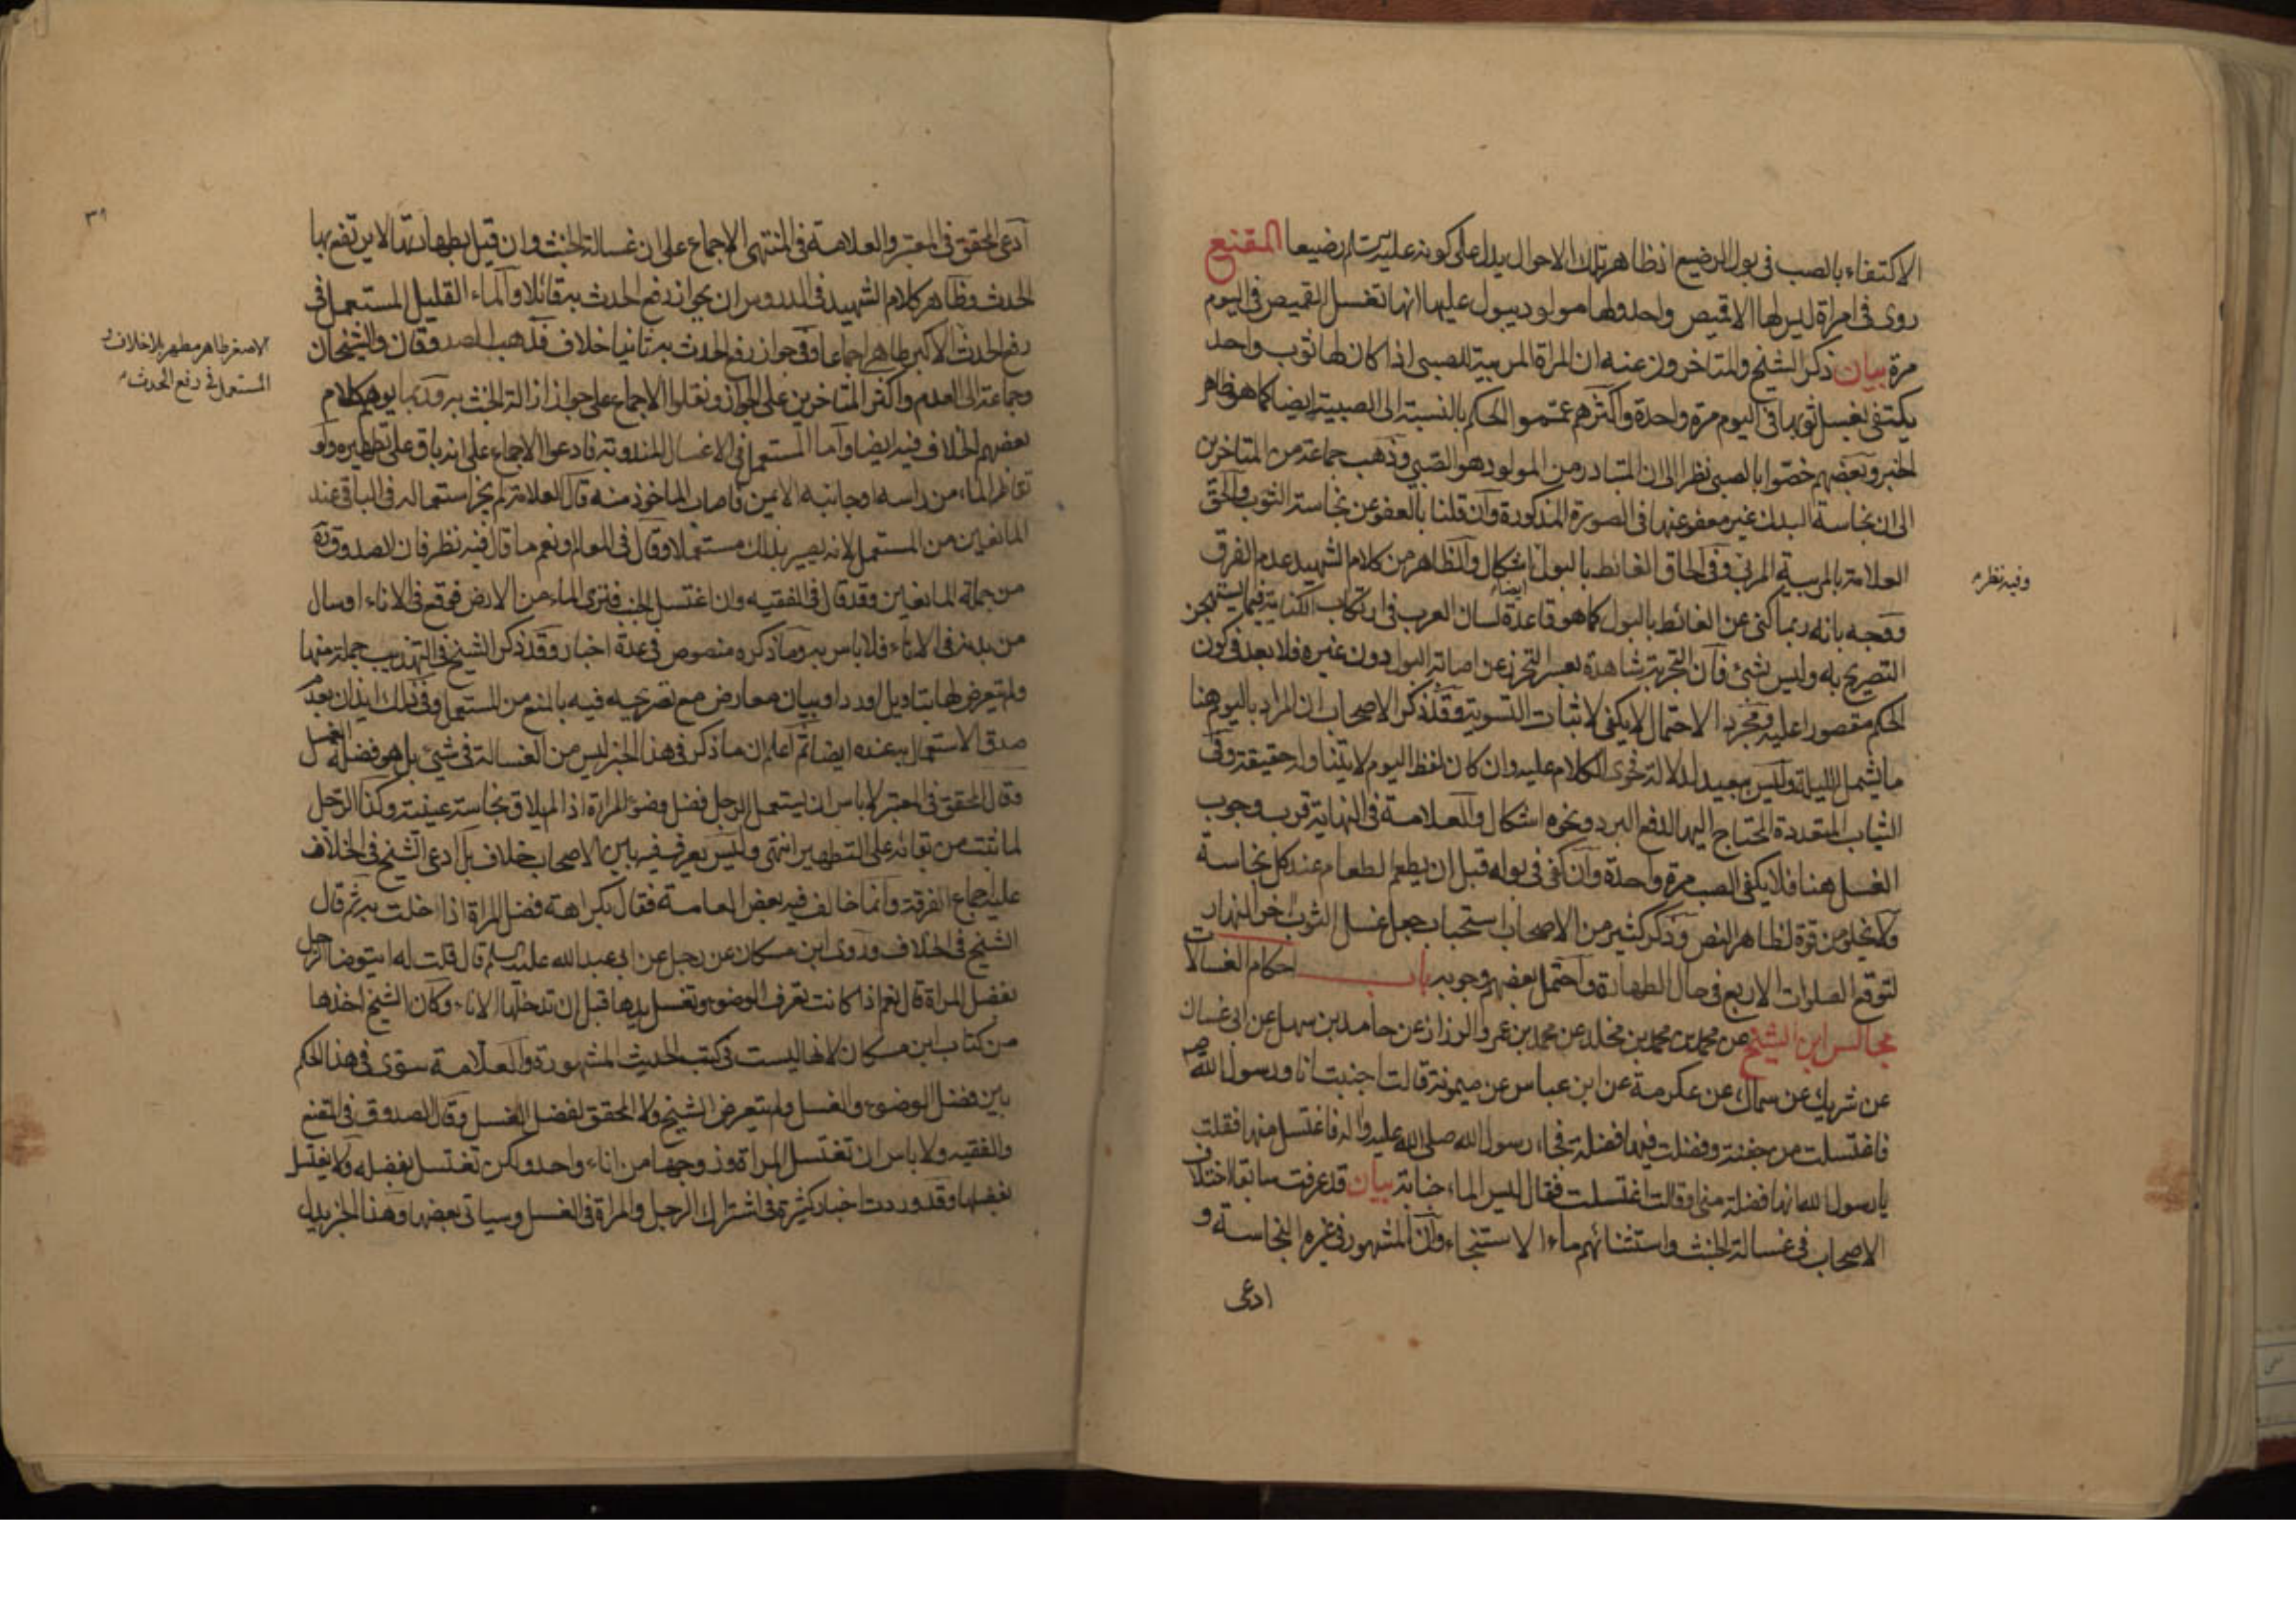 الاكتفاء بالصب في بول الرضيع اذ ظاهر تلك الاحوال يدل على كونه عليه السلم رضيعا المقنع
روى في امراة ليس لها الا قميص واحد ولها مولود يبول عليها انها تغسل القميص في اليوم
مرة بيان ذكر الشيخ والمتاخرون عنه ان المراة المربية للصبي اذا كان لها ثوب واحد
يكتفي بغسل ثوبها في اليوم مرة واحدة واكثرهم عمموا الحكم بالنسبة الى الصبية ايضا كما هو ظاهر
الخبر وبعضهم خصوا بالصبي نظرا الى ان المتبادر من المولود هو الصبي وذهب جماعة من المتاخرين
الى ان نجاسة البدن غير معفو عنها في الصورة المذكورة وان قلنا بالعفو عن نجاسة الثوب والحق
العلامة بالمربية المربي وفي الحاق الغائط بالبول اشكال والظاهر من كلام الشهيد عدم الفرق
وفيه نظر م
ايضا
ووجه بانه ربما كنى عن الغائط بالبول كما هو قاعدة لسان العرب في ارتكاب الكناية فيما يستهجن
التصريح به وليس بشئ فان التجربة شاهدة بعسر التحرز عن اصابة البول دون غيره فلا بعد في كون
الحكم مقصورا عليه ومجرد الاحتمال لا يكفي لاثبات التسوية وقد ذكر الاصحاب ان المراد باليوم هنا
ما يشمل الليلة وليس ببعيد لدلالة فحوى الكلام عليه وان كان لفظ اليوم لا يتناوله حقيقة وفي
الثياب المتعددة المحتاج اليها لدفع البرد ونحوه اشكال والعلامة في النهاية قرب وجوب
الغسل هنا فلا يكفي الصب مرة واحدة وان كفى في بوله قبل ان يطعم الطعام عند كل نجاسة
ولا يخلو من قوة لظاهر النص وذكر كثير من الاصحاب استحباب جعل غسل الثوب اخر النهار
لتوقع الصلوات الاربع في حال الطهارة واحتمل بعضهم وجوبه باب احكام الغسالات
مجالس ابن الشيخ عن محمد بن محمد بن مخلد عن محمد بن عمرو الرزاز عن حامد بن سهل عن ابي غسان
عن شريك عن سماك عن عكرمة عن ابن عباس عن ميمونة قالت اجنبت انا ورسول الله ص
فاغتسلت من جفنة وفضلت فيها فضلة فجاء رسول الله صلى الله عليه واله فاغتسل منها فقلت
يا رسول الله انها فضلة مني او قالت اغتسلت فقال ليس الماء جنابة بيان قد عرفت سابقا اختلاف
الاصحاب في غسالة الخبث واستثنائهم ماء الاستنجاء وان المشهور في غيره النجاسة و
ادعى
٣١
ادعى المحقق في المعتبر والعلامة في المنتهى الاجماع على ان غسالة الخبث وان قيل بطهارتها لا يرتفع بها
الحدث وظاهر كلام الشهيد في الدروس ان بجواز رفع الحدث به قائلا والماء القليل المستعمل في
رفع الحدث الاكبر طاهر اجماعا وفي جواز رفع الحدث به ثانيا خلاف فذهب الصدوقان والشيخان
الاصغر طاهر مطهر بلا خلاف و
المستعمل في رفع الحدث م
وجماعة الى العدم واكثر المتاخرين على الجواز ونقلوا الاجماع على جواز ازالة الخبث به وربما يوهم كلام
بعضهم الخلاف فيه ايضا واما المستعمل في الاغسال المندوبة فادعوا الاجماع على انه باق على تطهيره ولو
تقاطر الماء من راسه او جانبه الايمن فاصاب الماخوذ منه قال العلامة لم يجز استعماله في الباقي عند
المانعين من المستعمل لانه يصير بذلك مستعملا وقال في المعالم ونعم ما قال فيه نظر فان الصدوق ره
من جملة المانعين وقد قال في الفقيه وان اغتسل الجنب فنزى الماء من الارض فوقع في الاناء او سال
من بدنه في الاناء فلا باس به وما ذكره منصوص في عدة اخبار وقد ذكر الشيخ في التهذيب جملة منها
ولم يتعرض لها بتاويل او رد او بيان معارض مع تصريحه فيه بالمنع من المستعمل وفي ذلك ايذان بعدم
صدق الاستعمال به عنده ايضا ثم اعلم ان ما ذكر في هذا الخبر ليس من الغسالة في شئ بل هو فضلة الغسل
وقال المحقق في المعتبر لا باس ان يستعمل الرجل فضل وضوء المراة اذا لم يلاق نجاسة عينية وكذا الرجل
لما ثبت من بقائه على التطهير انتهى وليس يعرف فيه بين الاصحاب خلاف بل ادعى الشيخ في الخلاف
عليه اجماع الفرقة وانما خالف فيه بعض العامة فقال بكراهة فضل المراة اذا خلت به ثم قال
الشيخ في الخلاف وروى ابن مسكان عن رجل عن ابي عبد الله عليه السلم قال قلت له ايتوضا الرجل
بفضل المراة قال نعم اذا كانت تعرف الوضوء وتغسل يدها قبل ان تدخلها الاناء وكان الشيخ اخذها
من كتاب ابن مسكان لانها ليست في كتب الحديث المشهورة والعلامة سوى في هذا الحكم
بين فضل الوضوء والغسل ولم يتعرض الشيخ ولا المحقق لفضل الغسل وقال الصدوق في المقنع
والفقيه ولا باس ان تغتسل المراة وزوجها من اناء واحد ولكن تغتسل بفضله ولا يغتسل
بفضلها وقد وردت اخبار كثيرة في اشتراك الرجل والمراة في الغسل وسياتي بعضها وهذا الخبر يدل